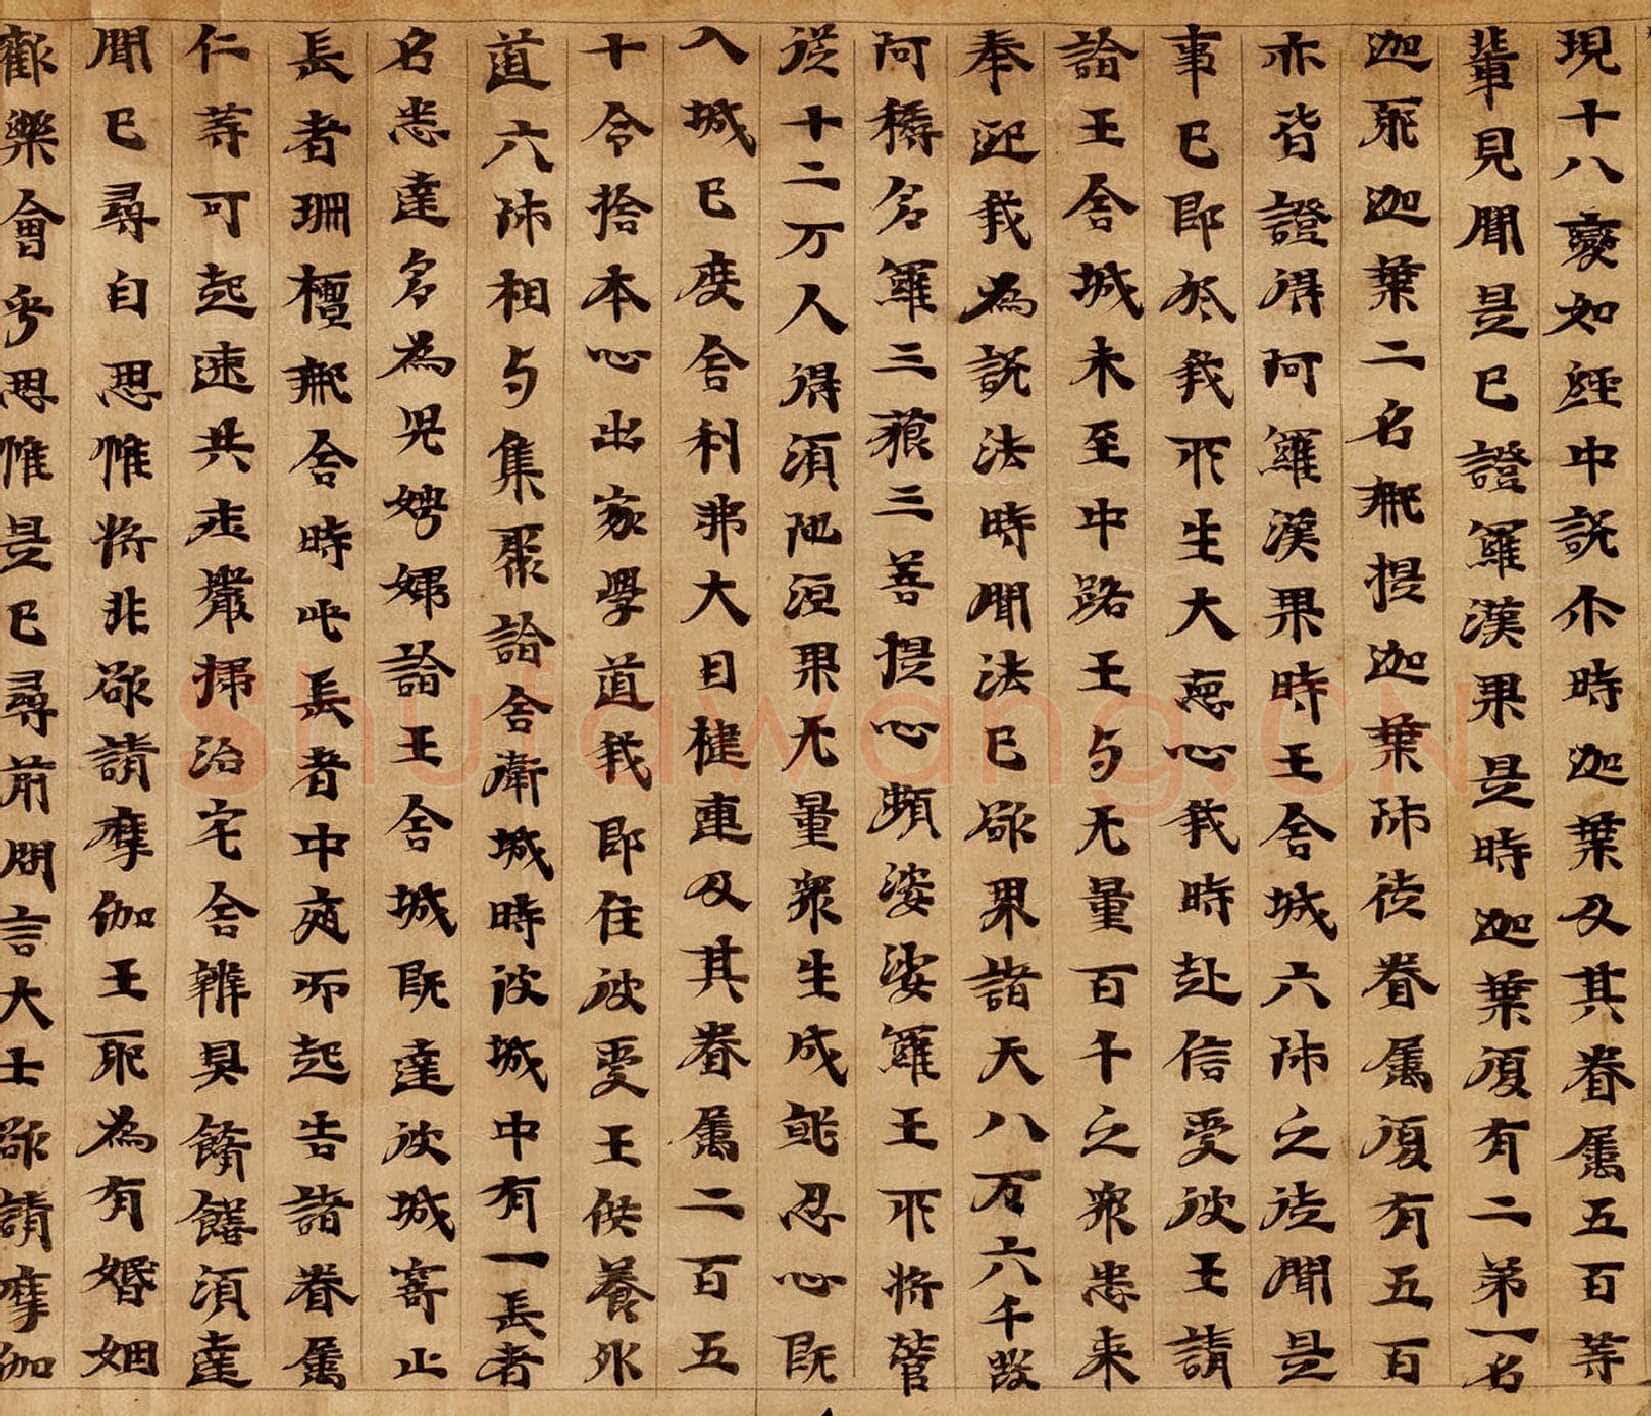 現十八變如經中説尒時迦葉及其眷属五百等
輩見聞是已證羅漢果是時迦葉復有二弟一名
迦耶迦葉二名那提迦葉師徒眷属復有五百
亦皆證得阿羅漢果時王舍城六師之徒聞是
事已即於我所生大惡心我時赴信受彼王請
詣王舍城未至中路王与无量百千之衆悉来
奉迎我為説法時聞法已欲界諸天八万六千發
阿耨多羅三藐三菩提心頻婆娑羅王所將營
從十二万人得須陁洹果无量衆生成就忍心既
入城已度舍利弗大目揵連及其眷属二百五
十令捨本心出家學道我即住彼受王供養外
道六師相与集聚詣舍衛城時彼城中有一長者
名悉達多為児娉婦詣王舍城既達彼城寄止
長者珊檀那舍時此長者中夜而起告諸眷属
仁等可起速共庄嚴掃治宅舍辦具餚饍須達
聞已尋自思惟將非欲請摩伽王耶為有婚姻
歡樂會乎思惟是已尋前問言大士欲請摩伽
shufawang.CN